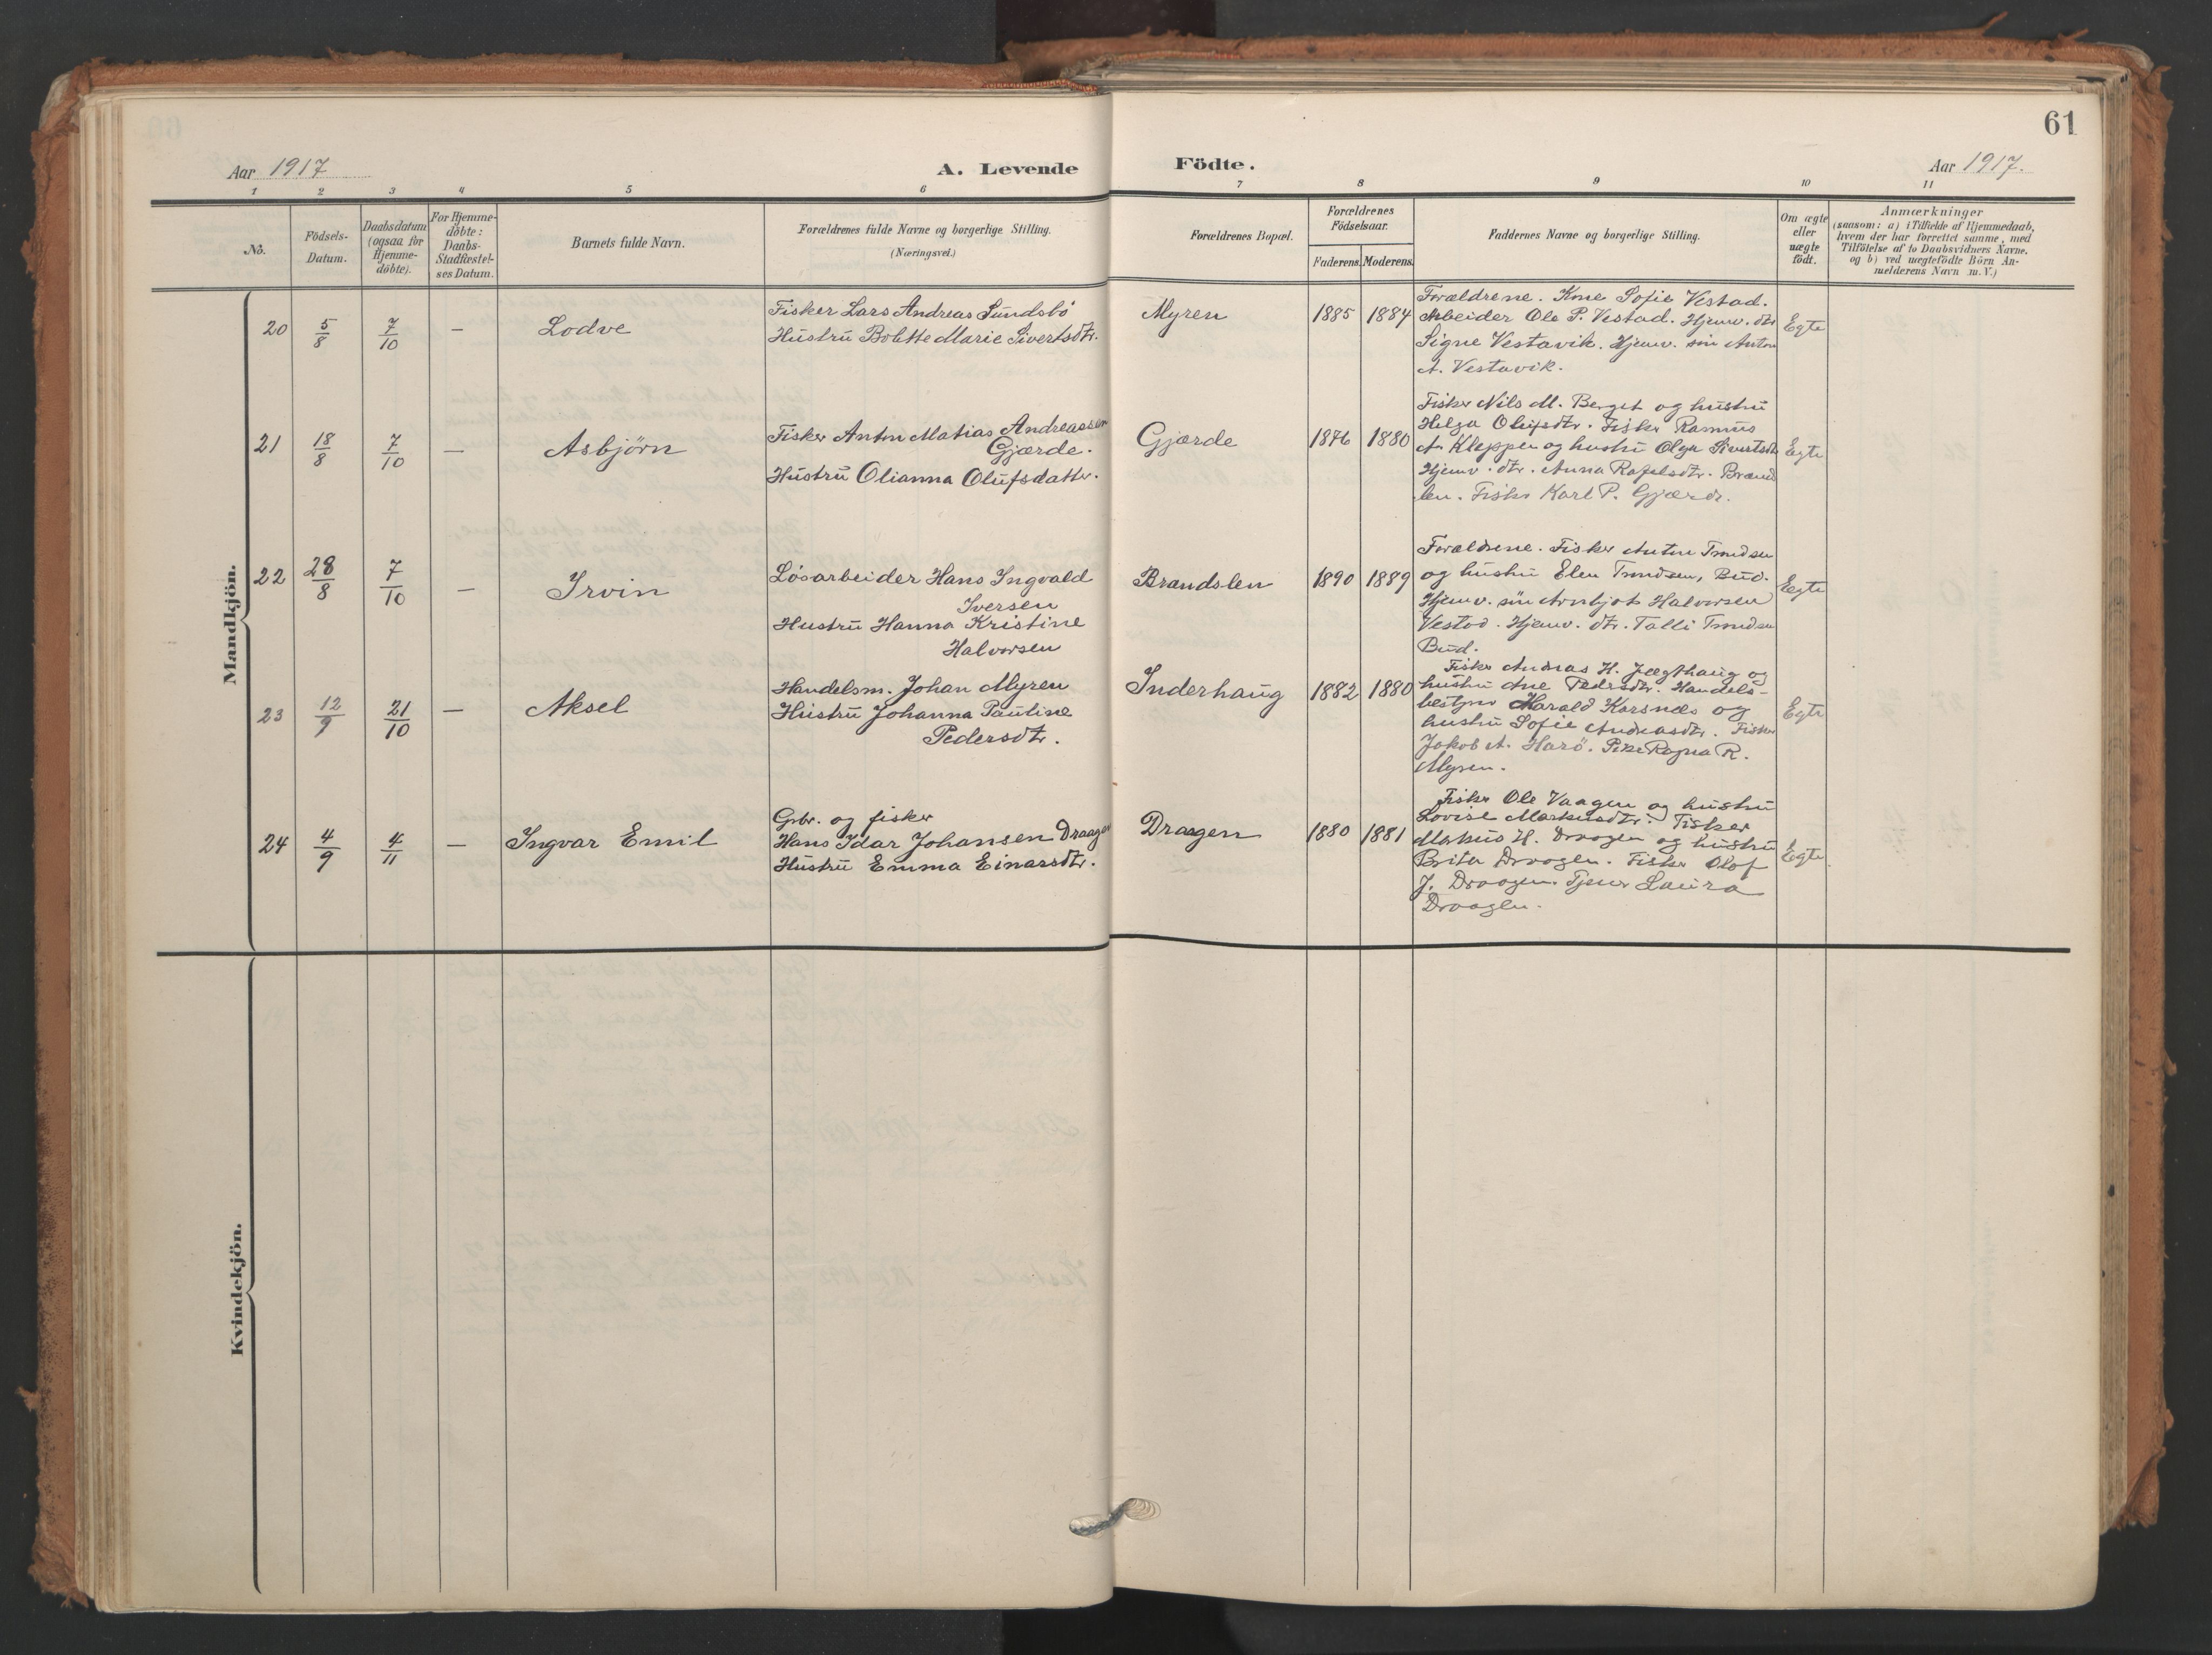 61
Aar 1917
A. Levende Födte.
Aar 1917.
1 2 3 4 5 6 7 8 9 10 11
No.
Födsels-
Datum.
Daabsdatum
(ogsaa for
Hjemme-
döbte).
For Hjemme-
döbte:
Daabs-
Stadfæstel-
ses Datum.
Barnets fulde Navn.
Forældrenes fulde Navne og borgerlige Stilling.
(Næringsvei.)
Forældrenes Bopæl.
Forældrenes
Födselsaar.
Faderens. Moderens.
Faddernes Navne og borgerlige Stilling.
Om ægte
eller
uægte
födt.
Anmærkninger
(saasom: a) i Tilfælde af Hjemmedaab,
hvem der har forrettet samme, med
Tilföielse af to Daabsvidners Navne,
og b) ved uægtefödte Börn An-
melderens Navn m. V.)
Mandkjön.
20 5/8 7/10 — Lodve
Fisker Lars Andreas Sundsbö
Hustru Bolette Marie Sivertsdtr.
Myren 1885 1884
Forældrene. Kone Sofie Vestad.
Arbeider Ole P. Vestad. Hjemv. dtr
Signe Vestavik. Hjemv. sön Anton
A. Vestavik.
Egte
21 18/8 7/10 — Asbjörn
Fisker Anton Matias Andreassen
Gjærde.
Hustru Olianna Olufsdatter.
Gjærde 1876 1880
Fisker Nils M. Berget og hustru
Helga Olufsdtr. Fisker Rasmus
A. Kleppen og hustru Olga Sivertsdtr
Hjemv. dtr. Anna Rafelsdtr. Brand
len. Fisker Karl P. Gjærde.
Egte
22 28/8 7/10 — Irvin
Lösarbeider Hans Ingvald
Iversen
Hustru Hanna Kristine
Halvorsen
Brandslen 1890 1889
Forældrene. Fisker Anton Trondsen
og hustru Elen Trondsen, Bud.
Hjemv. sön Arnljot Halvorsen
Vestad. Hjemv. dtr. Talli Trondsen
Bud.
Egte
23 12/9 21/10 — Aksel
Handelsm. Johan Myren
Hustru Johanna Pauline
Pedersdtr.
Inderhaug 1882 1880
Fisker Andreas H. Jægthaug og
hustru Ane Pedersdtr. Handels-
bestyrer Harald Korsnes og
hustru Sofie Andreasdtr. Fisker
Jakob A. Harö. Pike Ragna R.
Myren.
Egte
24 4/9 4/11 — Ingvar Emil
Gbr. og fisker
Hans Idar Johansen Draagen
Hustru Emma Einarsdtr.
Draagen 1880 1881
Fisker Ole Vaagen og hustru
Lovise Markusdtr. Fisker
Markus H. Draagen og hustru
Brita Draagen. Fisker Olof
J. Draagen. Tjener Laura
Draagen.
Egte
Kvindekjön.